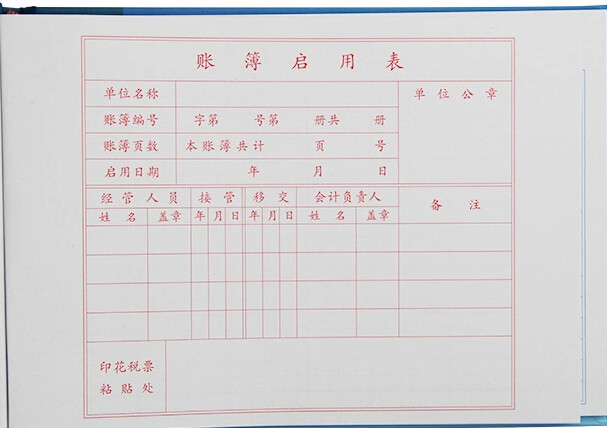 账簿启用表
单位名称 单位公章
账簿编号 字第 号第 册共 册
账簿页数 本账簿共计 页 号
启用日期 年 月 日
经管人员 接管 移交 会计负责人 备注
姓名 盖章 年 月 日 年 月 日 姓名 盖章
印花税票
粘贴处